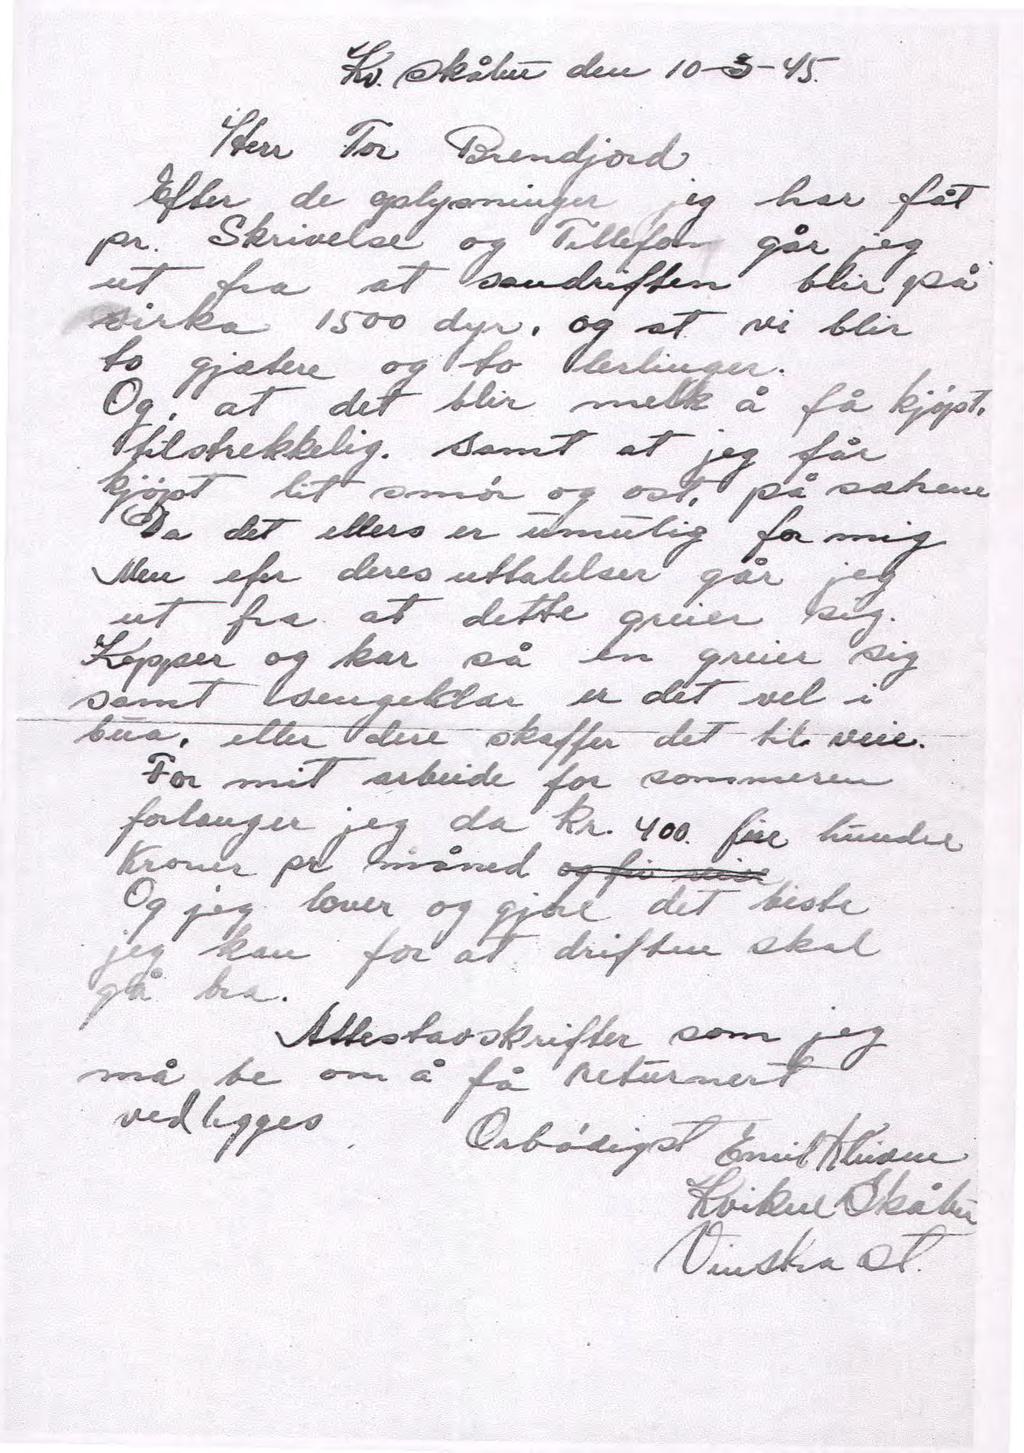 Kv. Skåbu den 10-3-45.
Herr Tor Brendjord
Efter de oplysninger jeg har fåt
pr. Skrivelse og Tillefon går jeg
ut fra at saudriften blir på
sirka 1500 dyr, og at vi blir
to gjætere og to lerlinger.
Og, at det blir melk å få kjøpt,
tilstrekkelig. Samt at jeg får
kjøpt lit smör og ost, på sætrene
Da det ellers er umulig for mig
Men efer deres uttalelser går jeg
ut fra at dette greier sig.
Kopper og kar så en greier sig
samt sengeklær er det vel i
bua, eller dere skaffer det til veie.
For mit arbeide for sommeren
forlanger jeg da kr. 400. fire hundre
Kroner pr måned og fri reise
Og jeg lover og gjøre det beste
jeg kan for at driften skal
gå bra.
Attestavskrifter som jeg
må be om å få returnert
vedligges
Örbödigst Emil Kluven
Kvikne Skåbu
Vinstra St.